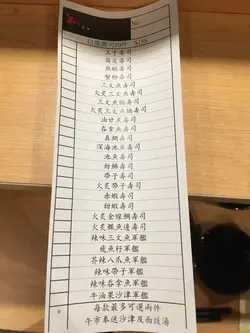 No.
自選壽司10件 $158
玉子壽司
腐皮壽司
熟蝦壽司
蟹柳壽司
三文魚壽司
火炙三文魚壽司
三文魚腩壽司
火炙三文魚腩壽司
油甘魚壽司
吞拿魚壽司
真鯛壽司
深海池魚壽司
池魚壽司
魷魚壽司
帶子壽司
火炙帶子壽司
赤蝦壽司
甜蝦壽司
火炙金線鯛壽司
火炙鰈魚邊壽司
辣味三文魚軍艦
飛魚籽軍艦
芥辣八爪魚軍艦
辣味帶子軍艦
辣味吞拿魚軍艦
牛油果沙津軍艦
每款最多可選兩件
午市奉送沙津及麵豉湯